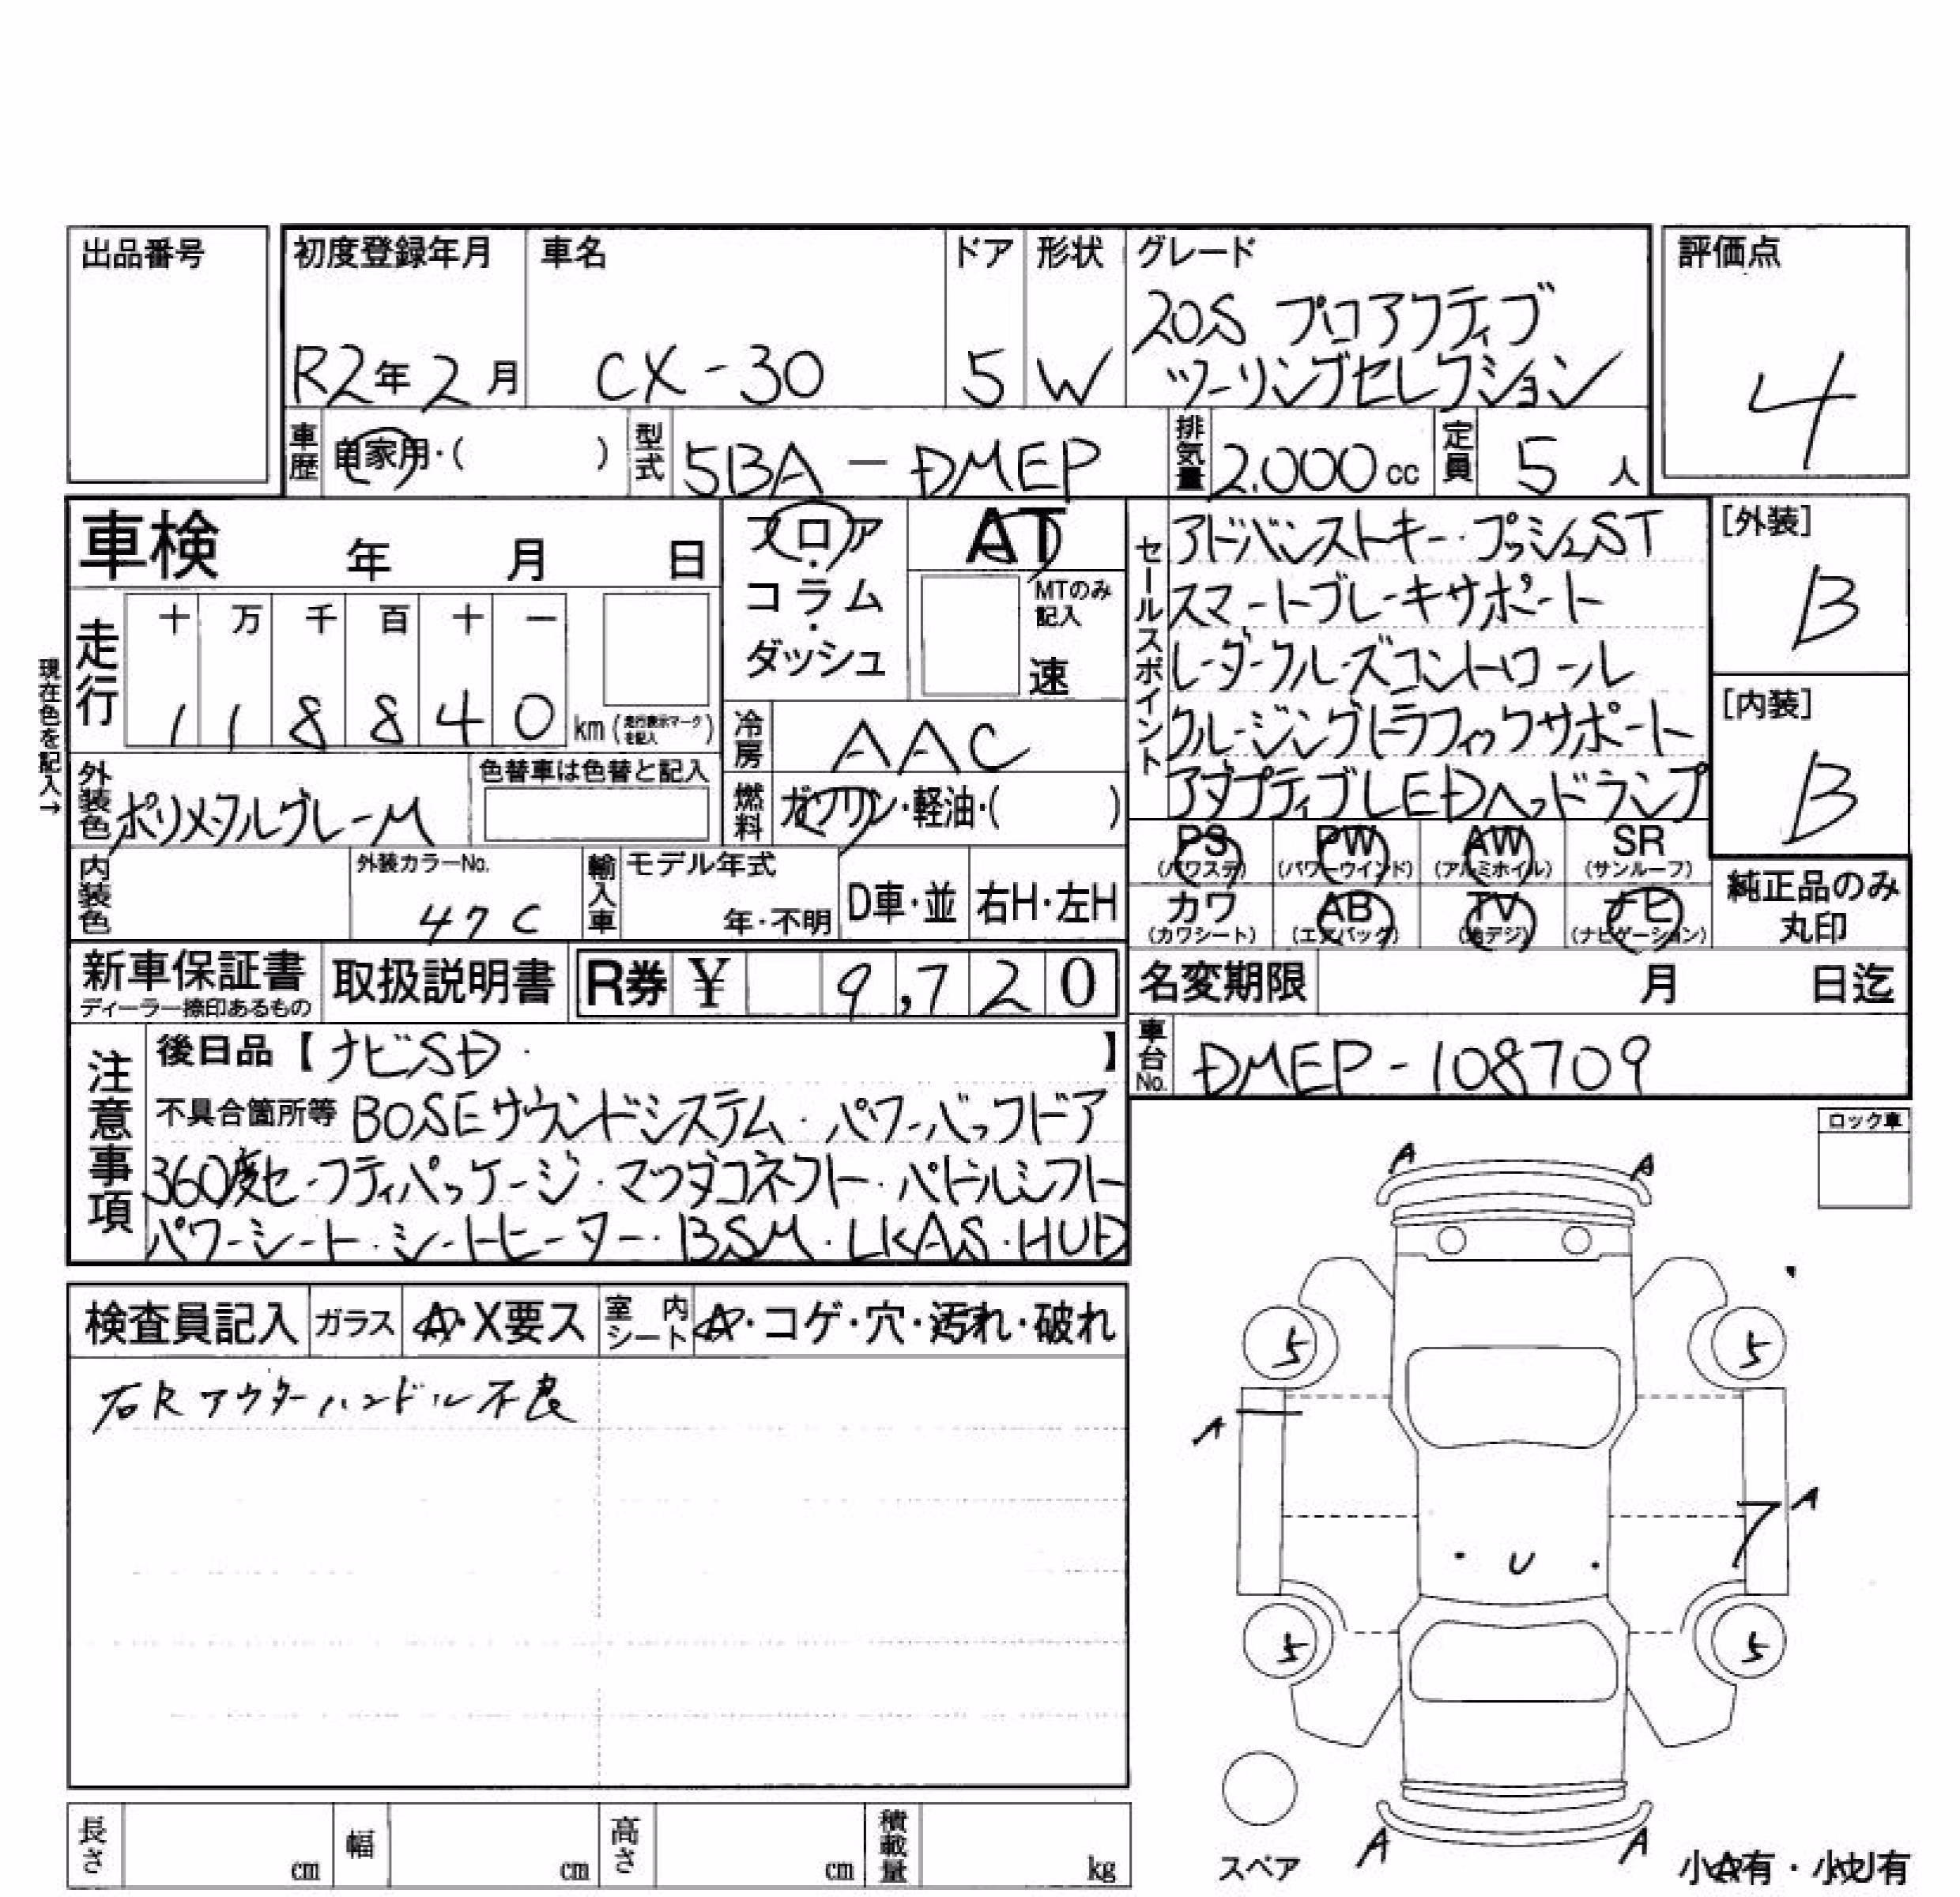 出品番号
初度登録年月 車名 ドア 形状 グレード 評価点
20S プロアクティブ
R2年2月 CX-30 5 W ツーリングセレクション
4
車歴 自家用・( ) 型式 5BA-DMEP 排気量 2.000cc 定員 5人
車検 年 月 日
フロア・コラム・ダッシュ
AT
MTのみ記入
速
セールスポイント
アドバンストキー・プッシュST
スマートブレーキサポート
レーダークルーズコントロール
クルージングトラフィックサポート
アダプティブLEDヘッドランプ
[外装]
B
[内装]
B
現在色を記入→
走行 十 万 千 百 十 一
1 1 8 8 4 0 km (走行表示マークを記入)
冷房 AAC
外装色 ポリメタルグレーM 色替車は色替と記入
燃料 ガソリン・軽油・( )
内装色 外装カラーNo. 47C 輸入車 モデル年式 年・不明 D車・並 右H・左H
PS (パワステ) PW (パワーウインド) AW (アルミホイル) SR (サンルーフ)
カワ (カワシート) AB (エアバック) TV (地デジ) ナビ (ナビゲーション)
純正品のみ丸印
新車保証書 ディーラー捺印あるもの 取扱説明書 R券 ¥ 9,720
名変期限 月 日迄
車台No. DMEP-108709
注意事項
後日品【ナビSD・ 】
不具合箇所等 BOSEサウンドシステム・パワーバックドア
360度セーフティパッケージ・マツダコネクト・パドルシフト
パワーシート・シートヒーター・BSM・LKAS・HUD
ロック車
検査員記入 ガラス A・X要ス 室内シート A・コゲ・穴・汚れ・破れ
右Rアウターハンドル不良
A A
5 5
A
A
7
U
5 5
スペア
A A
小A有・小U有
長さ cm 幅 cm 高さ cm 積載量 kg